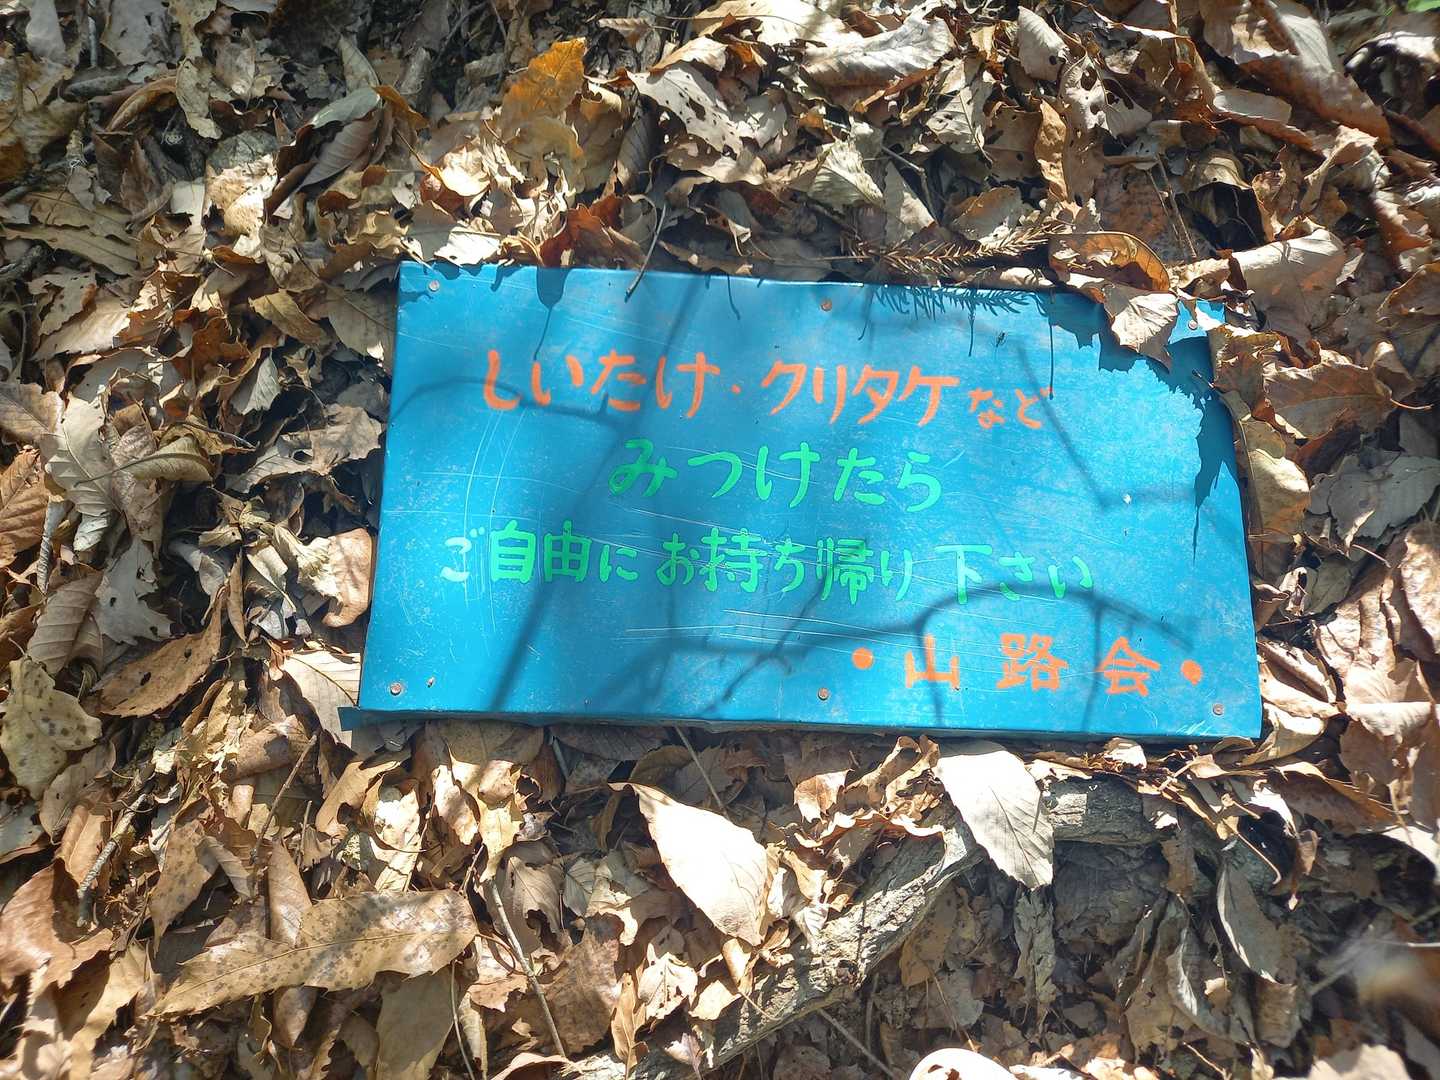 しいたけ・クリタケなど
みつけたら
ご自由にお持ち帰り下さい
•山路会•